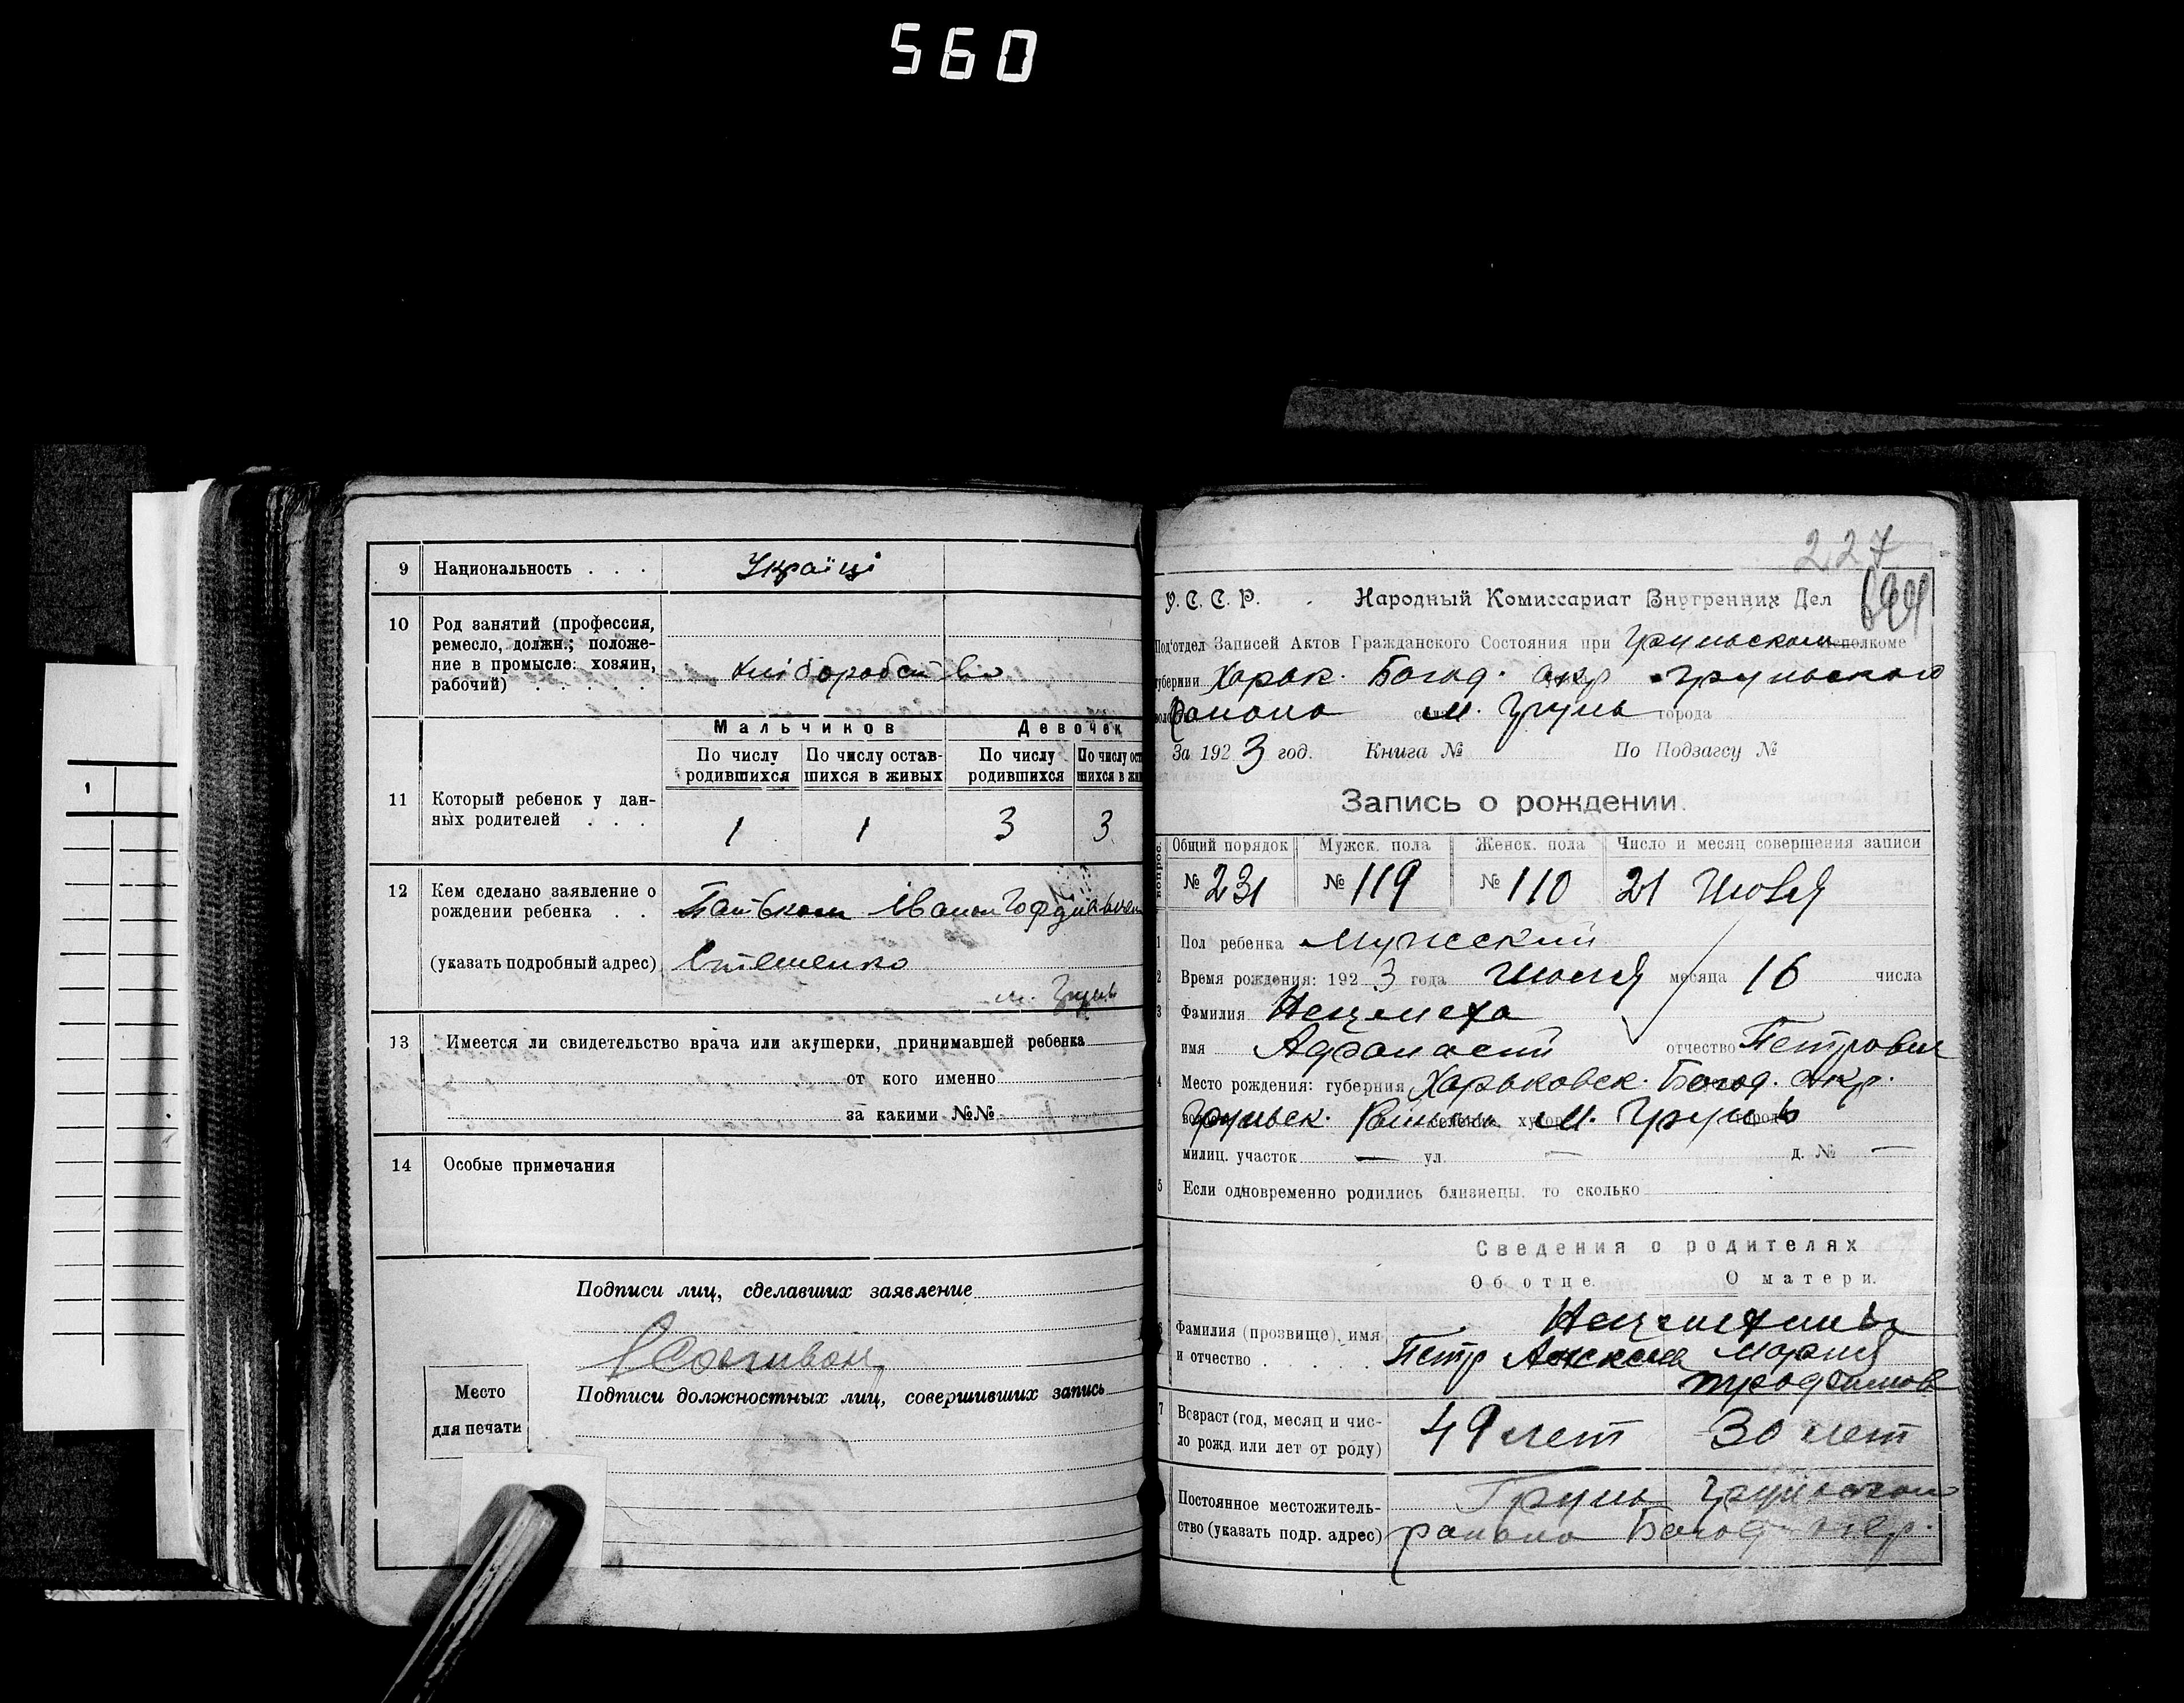 560
9 Национальность . . . Україці
10 Род занятий (профессия, ремесло, должн.; положе-
ние в промысле: хозяин,
рабочий) . . . . . хліборобство
Мальчиков Девочек
По числу родившихся По числу остав-шихся в живых По числу родившихся По числу ост шихся в жив
11 Который ребенок у дан-
ных родителей . . . 1 1 3 3
12 Кем сделано заявление о
рождении ребенка . . Батьком Іваном
(указать подробный адрес)
м. Грунь
13 Имеется ли свидетельство врача или акушерки, принимавшей ребенка
от кого именно
за какими №№
14 Особые примечания
Подписи лиц, сделавших заявление
Подписи должностных лиц, совершивших запись
Место
для печати
227
У. С. С. Р. Народный Комиссариат Внутренних Дел
Под'отдел Записей Актов Гражданского Состояния при Груньском исполкоме
губернии Харьк. Богод. окр Груньского
района м. Грунь города
За 1923 год. Книга № По Подзагсу №
Запись о рождении.
Общий порядок Мужск. пола Женск. пола Число и месяц совершения записи
№ 231 № 119 № 110 21 Июля
1 Пол ребенка Мужеский
2 Время рождения: 1923 года Июля месяца 16 числа
3 Фамилия
имя Афанасий отчество Петрович
4 Место рождения: губерния Харьковск. Богод. окр.
Груньск. селение, хутор м. Грунь город
милиц. участок — ул. — д. № —
5 Если одновременно родились близнецы, то сколько
Сведения о родителях
Об отце. О матери.
6 Фамилия (прозвище), имя
и отчество . . . . Петр Алексеев Мария
Трофимов
7 Возраст (год, месяц и чис-
ло рожд. или лет от роду) 49 лет 30 лет
Постоянное местожитель- Грунь Груньского
ство (указать подр. адрес) района Богод окр.